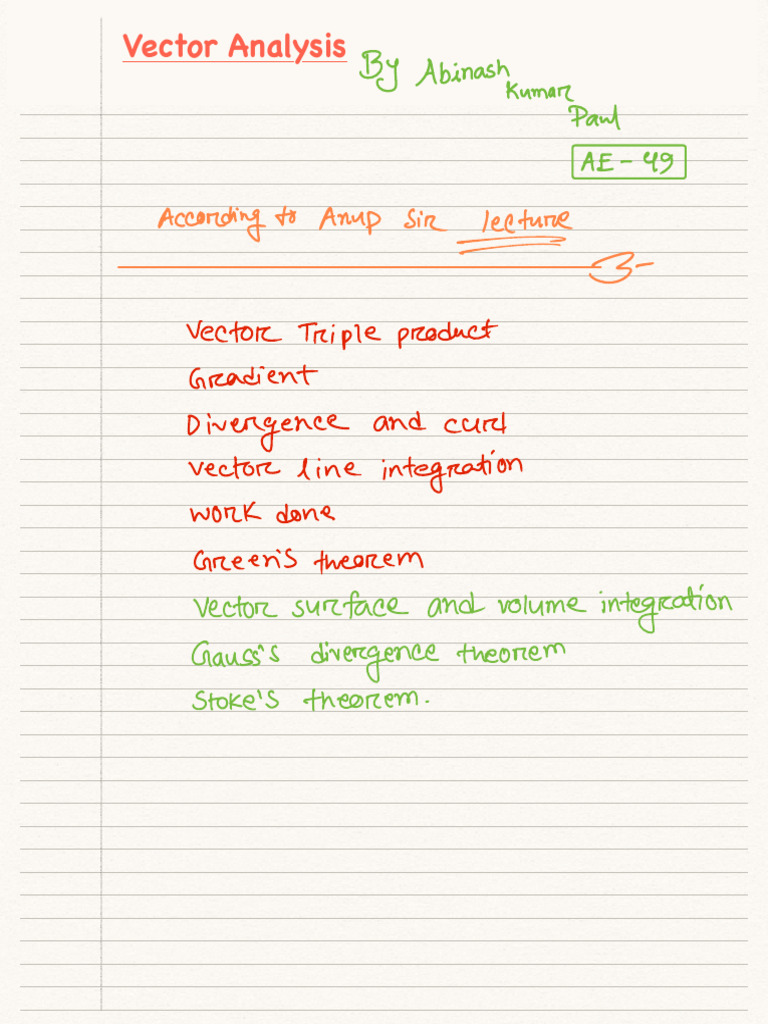 Vector Analysis
By Abinash
Kumar
Paul
AE - 49
According to Anup Sir lecture
Vector Triple product
Gradient
Divergence and curl
vector line integration
work done
Green's theorem
Vector surface and volume integration
Gauss's divergence theorem
Stoke's theorem.